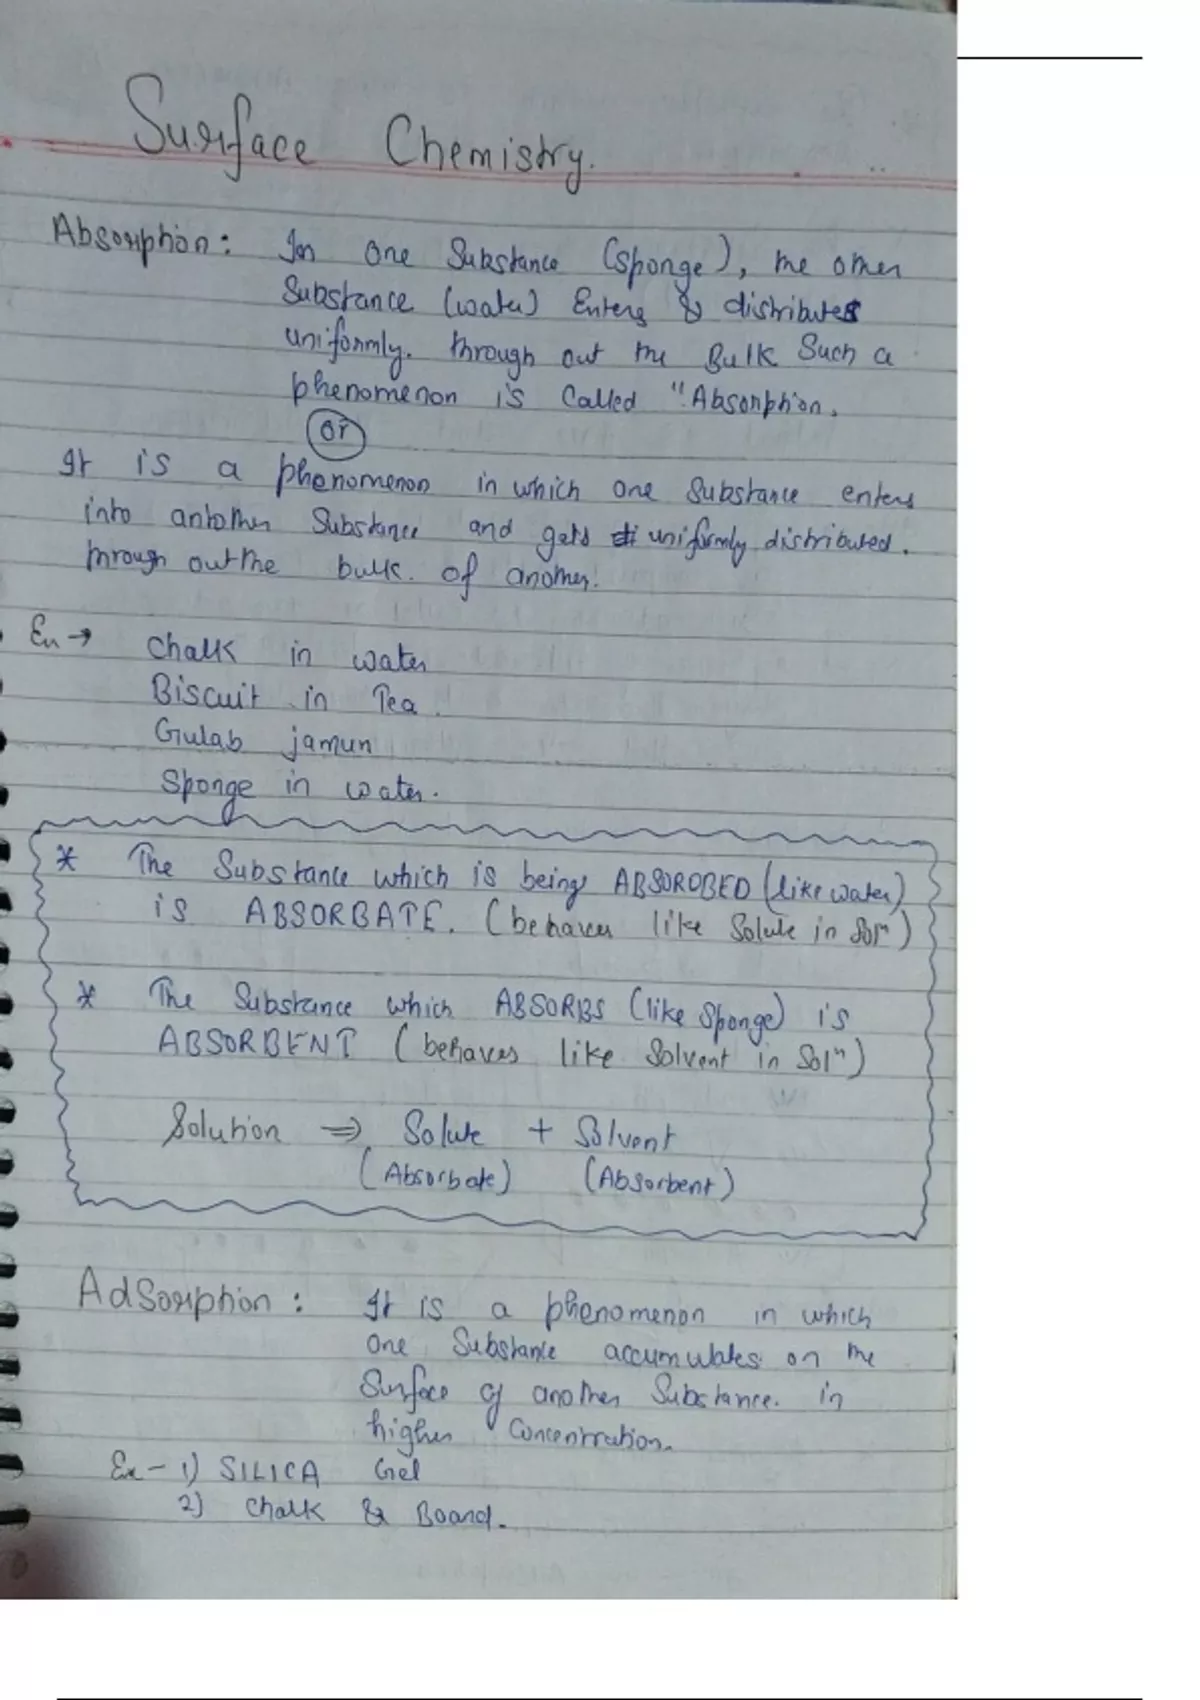 Surface Chemistry.
Absorption: In one Substance (sponge), the other
Substance (water) Enters & distributes
uniformly. through out the Bulk Such a
phenomenon is Called "Absorption.
or
It is a phenomenon in which one Substance enters
into another Substance and gets uniformly distributed.
through out the bulk. of another.
Ex → Chalk in water
Biscuit in Tea.
Gulab jamun
Sponge in water.
* The Substance which is being ABSOROBED (like water)
is ABSORBATE. (behaves like Solute in Solⁿ)
* The Substance which ABSORBS (like Sponge) is
ABSORBENT (behaves like Solvent in Solⁿ)
Solution ⇒ Solute + Solvent
(Absorbate) (Absorbent)
AdSorption: It is a phenomenon in which
one Substance accumulates on the
Surface of another Substance. in
higher Concentration.
Ex - 1) SILICA Gel
2) Chalk & Board.